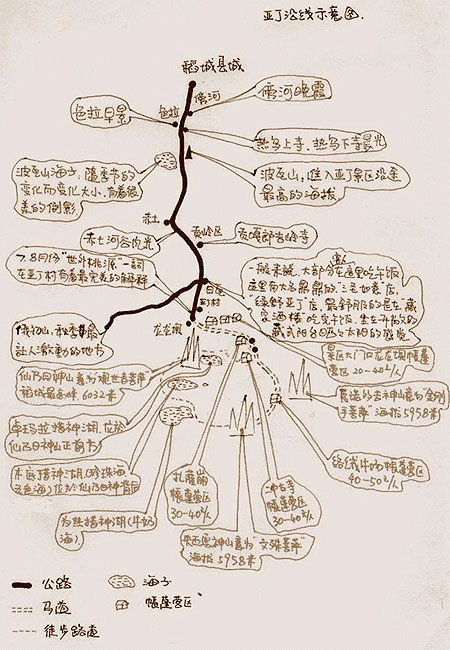 亚丁沿线示意图.
稻城县城
傍河
傍河晚霞
色拉
色拉早景
热乌上寺、热乌下寺晨光
波瓦山海子, 随季节的
变化而变化大小, 有着很
美的倒影
波瓦山, 进入亚丁景区沿途
最高的海拔
赤土
赤土河谷风光
贡岭区
贡嘎郎吉岭寺
7.8月份"世外桃源"一词
在亚丁村有着最完美的解释
一般来说, 大部分在这里吃午饭
这里有大名鼎鼎的"三毛如意店,
绿野亚丁店, 最舒服的是在"藏
式阳台回
日瓦
亚丁村
俄初山, 秋季最
让人激动的地方
龙龙坝
景区大门口在龙龙坝帐篷
营区 20-40元/人
仙乃日神山意为观世音菩萨
稻城最高峰 6032米
夏诺多吉神山意为"金刚
手菩萨"海拔5958米
卓玛拉措神湖, 位於
仙乃日神山正前方
络绒牛场帐篷营区
40-50元/人
扎灌崩
帐篷营区
30-40元/人
冲古寺
帐篷营区
30-40元/人
为热措神湖(牛奶
海)
央迈勇神山意为"文殊菩萨"
海拔 5958米
公路
海子
马道
帐篷营区
徒步路道